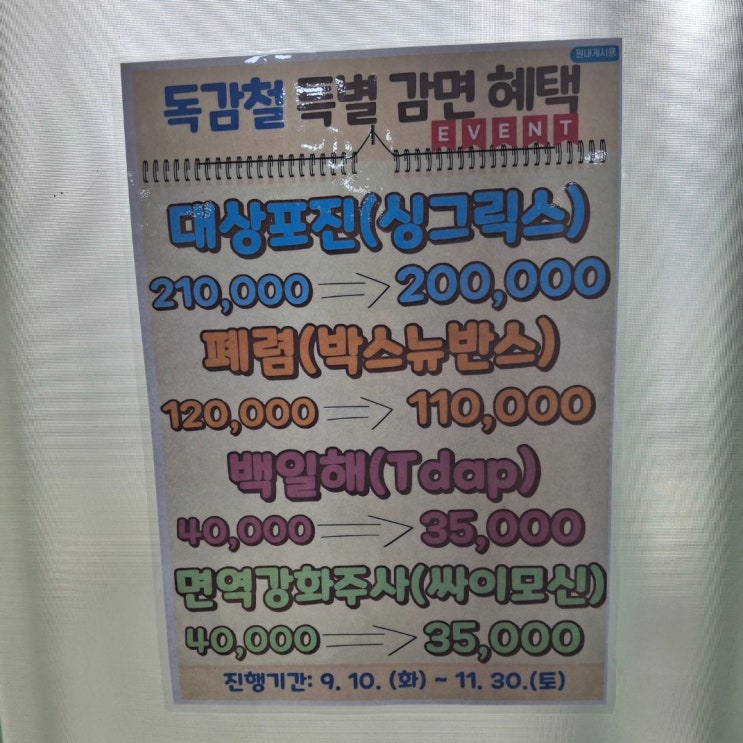 원내게시용
독감철 특별 감면 혜택
EVENT
대상포진(싱그릭스)
210,000 ⇒ 200,000
폐렴(박스뉴반스)
120,000 ⇒ 110,000
백일해(Tdap)
40,000 ⇒ 35,000
면역강화주사(싸이모신)
40,000 ⇒ 35,000
진행기간: 9. 10. (화) ~ 11. 30.(토)